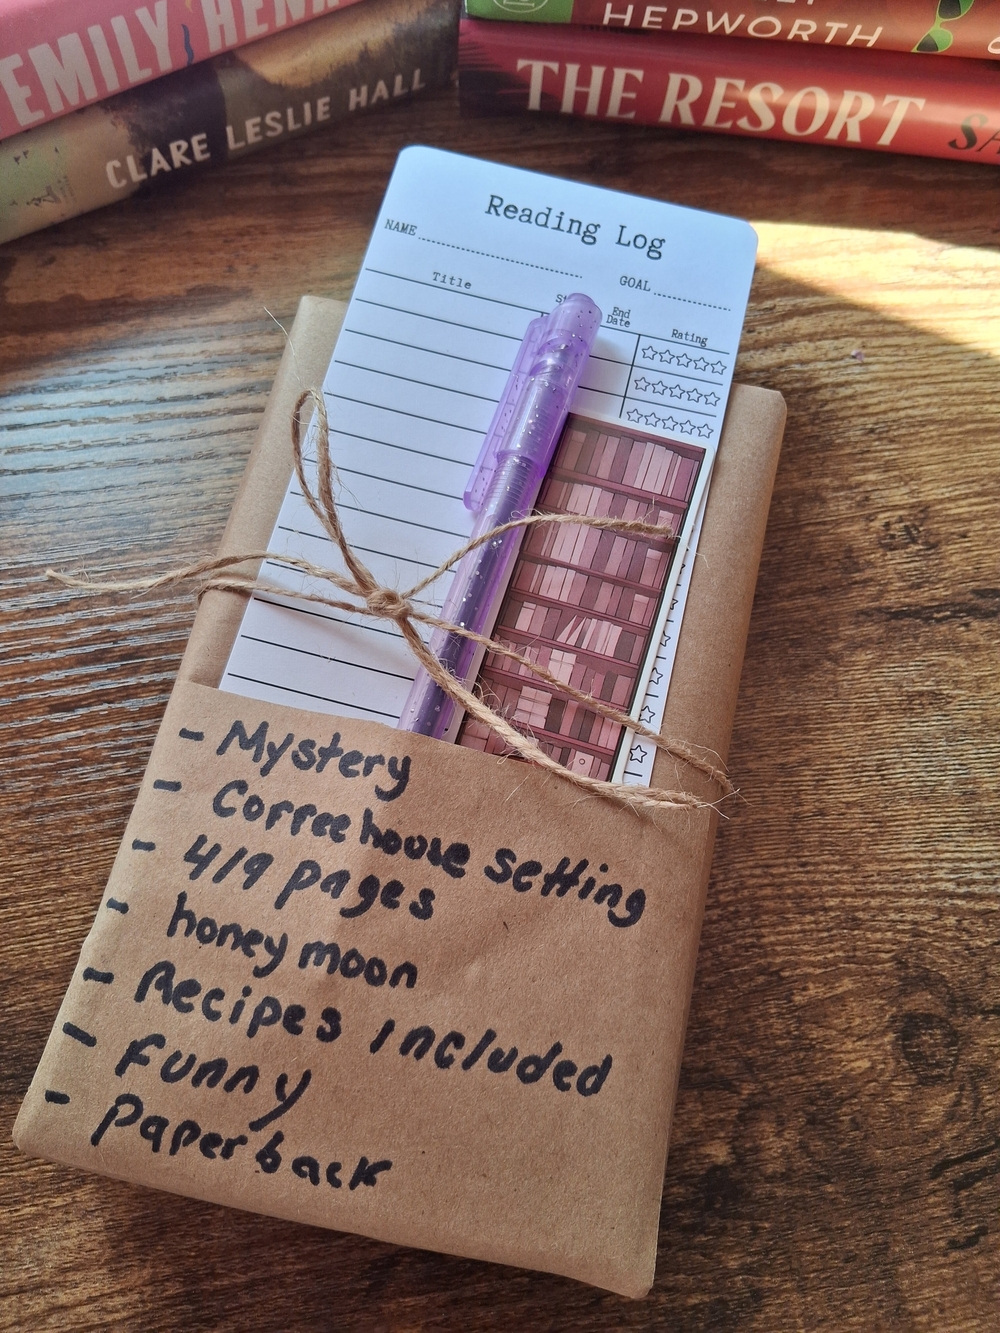 EMILY HENR
CLARE LESLIE HALL
HEPWORTH
THE RESORT SA
Reading Log
NAME
GOAL
Title
End
Date
Rating
- Mystery
- Coffeehouse setting
- 419 pages
- honey moon
- Recipes included
- Funny
- Paperback